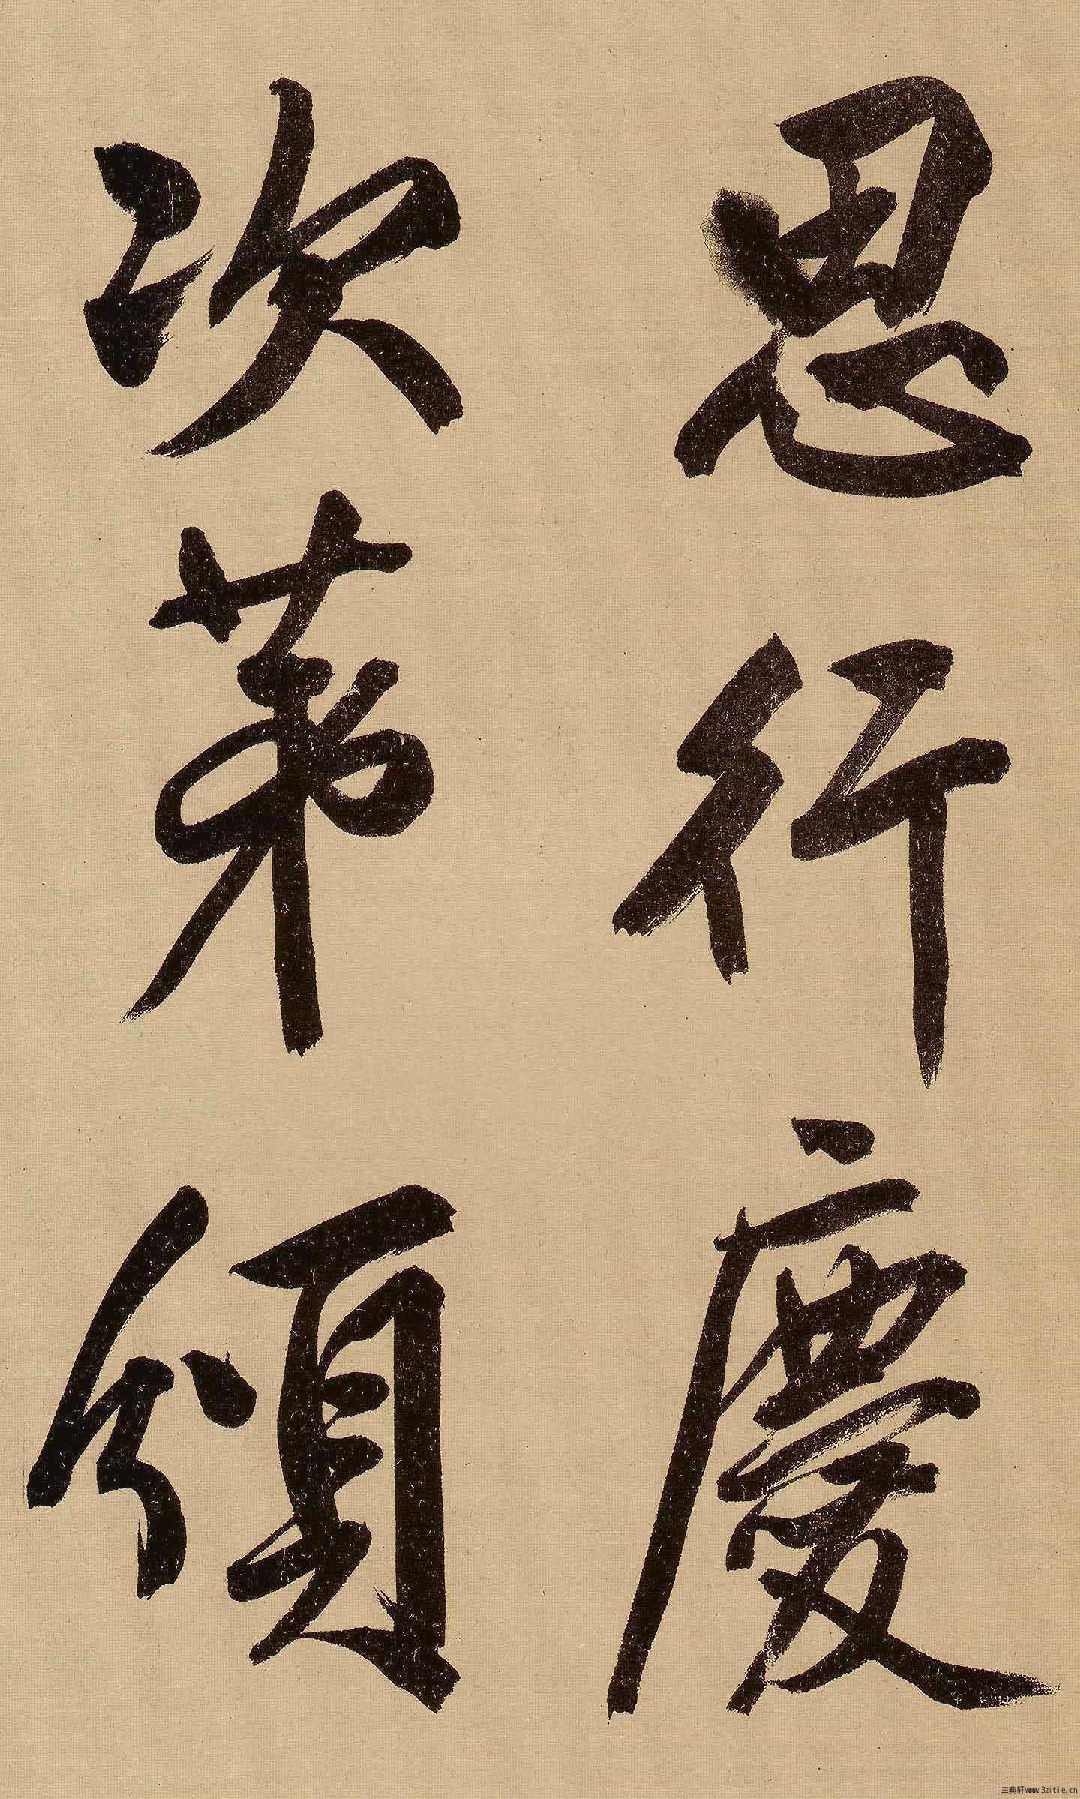 恩行慶
次第頒
三典轩www.3zitie.cn